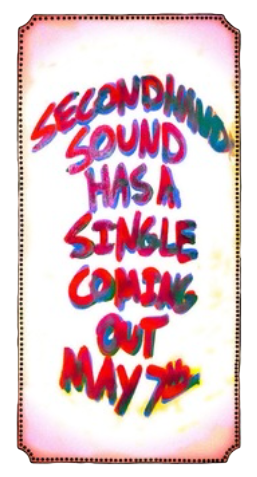 SECONDHAND
SOUND
HAS A
SINGLE
COMING
OUT
MAY 7th